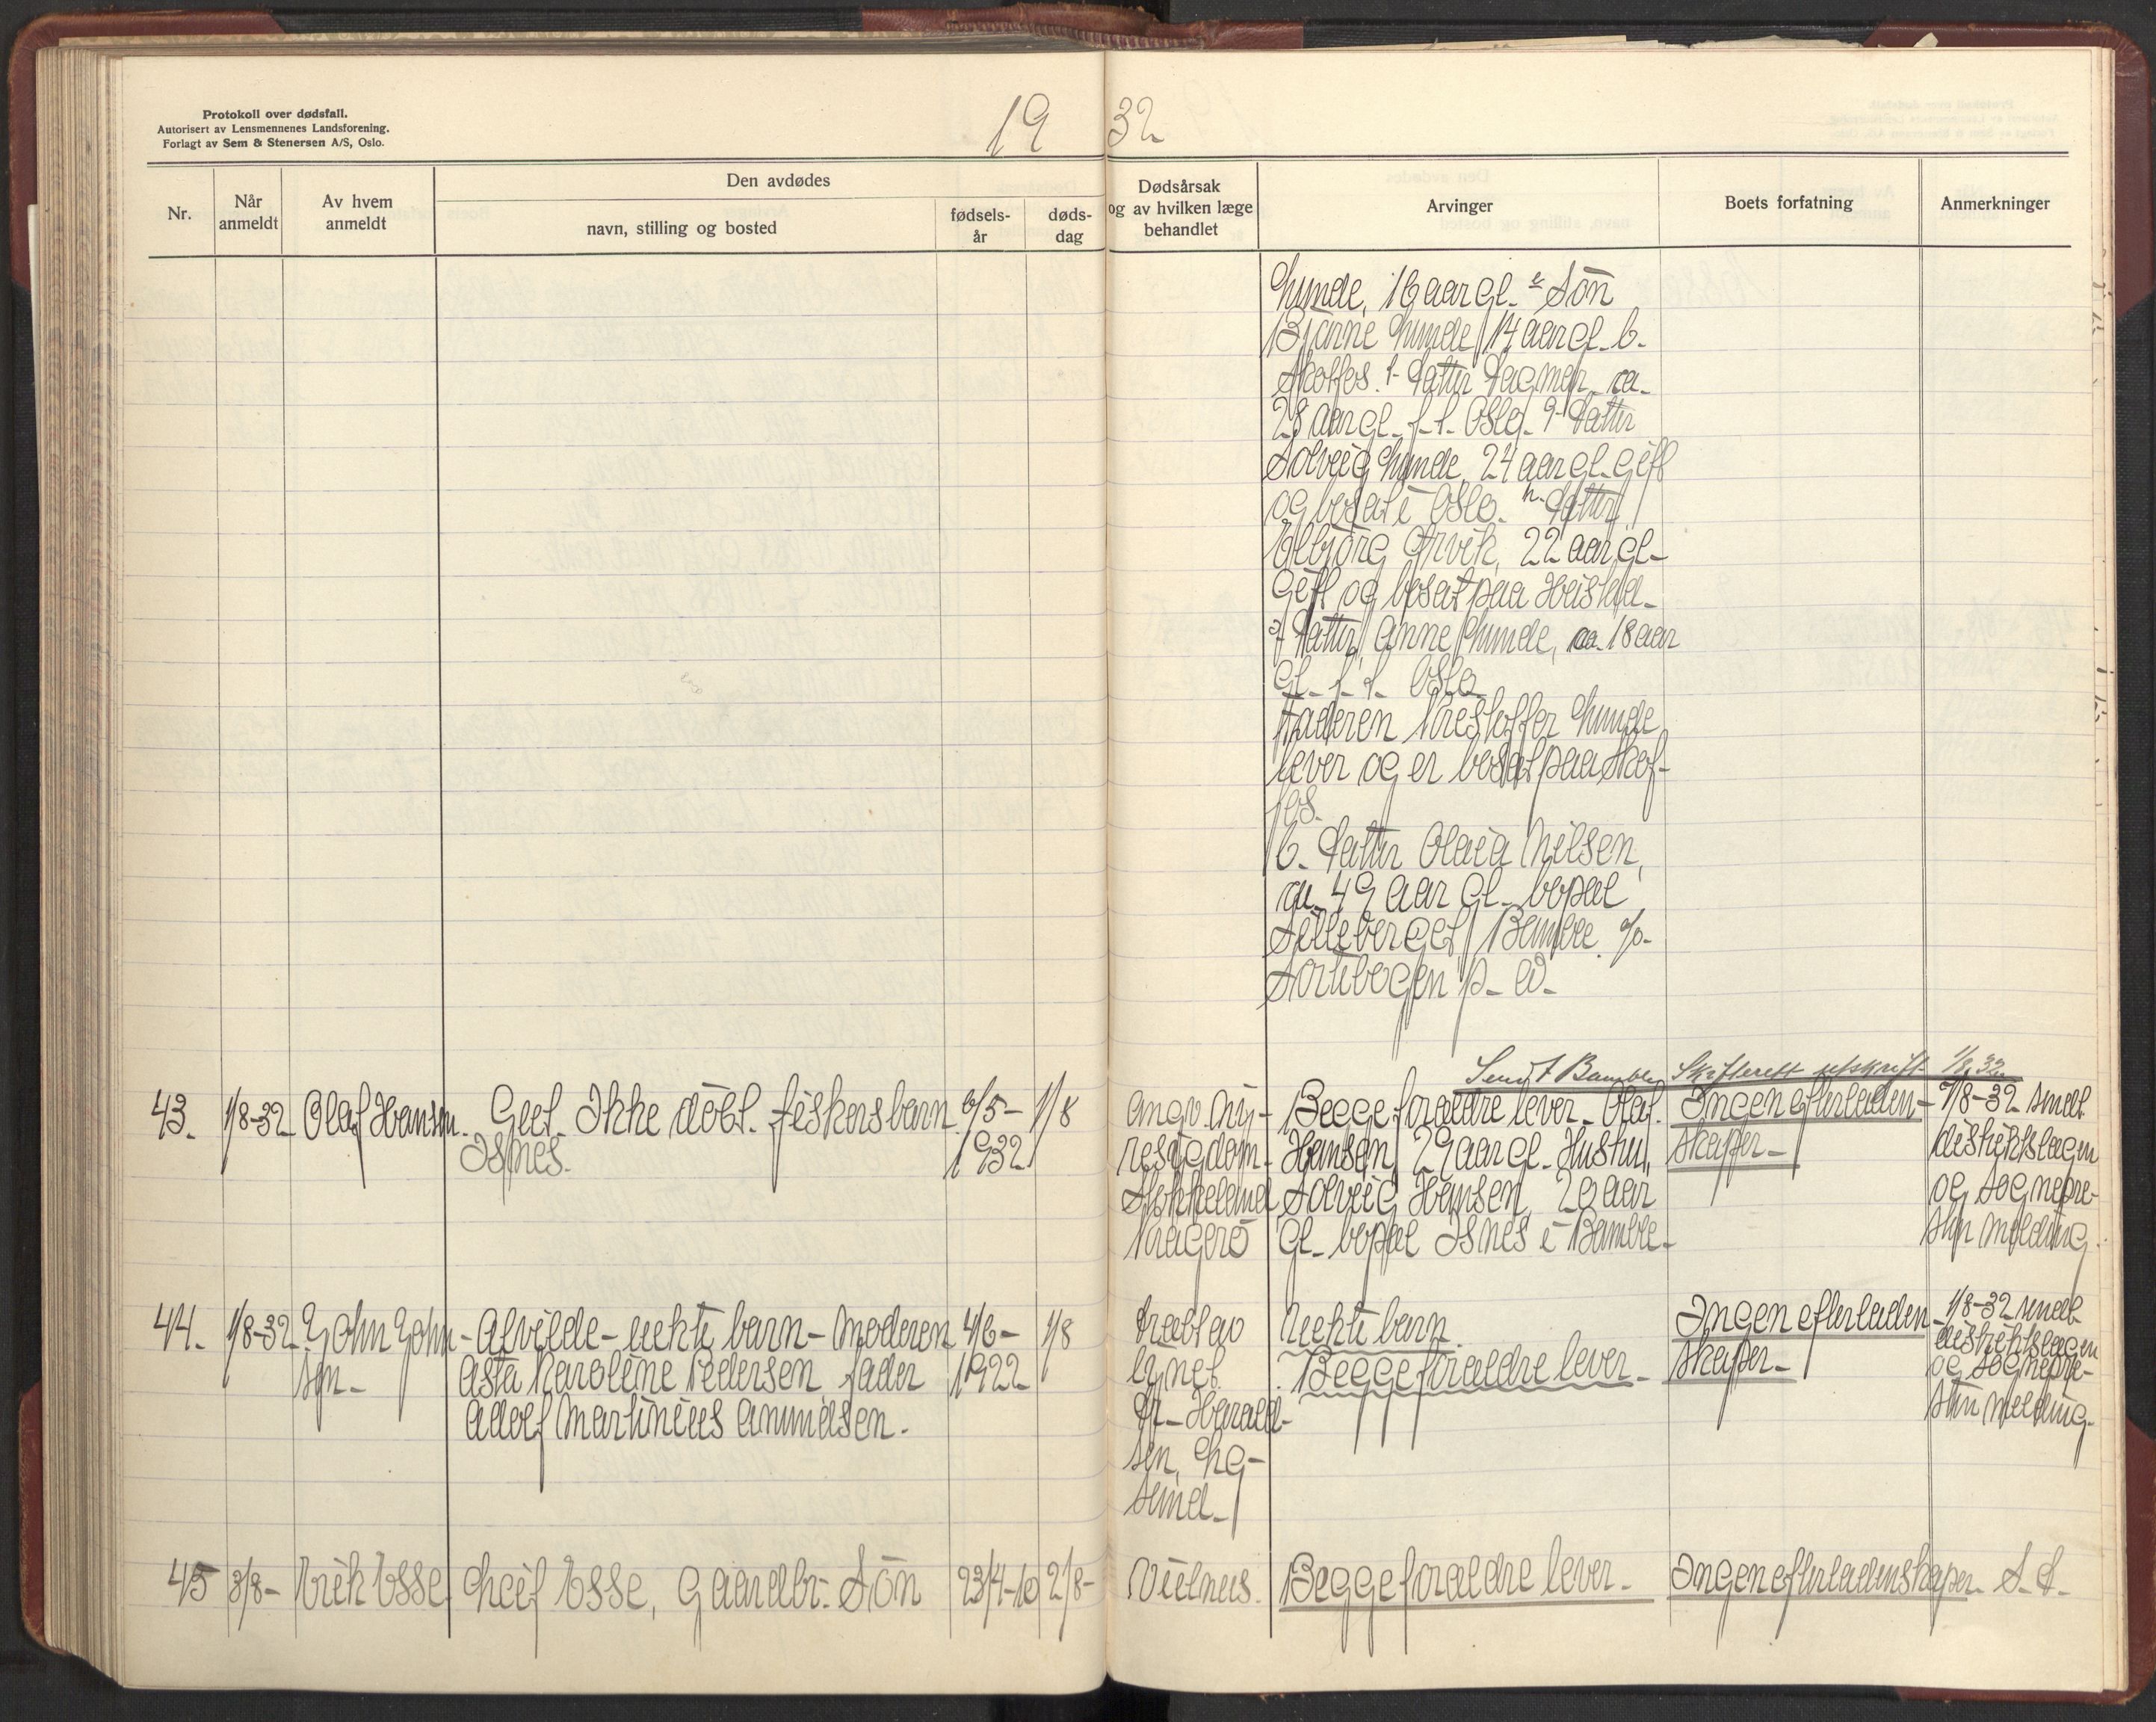 Protokoll over dødsfall.
Autorisert av Lensmennenes Landsforening.
Forlagt av Sem & Stenersen A/S, Oslo.
19 32
Nr.
Når anmeldt
Av hvem anmeldt
Den avdødes
navn, stilling og bosted
fødsels-år
døds-dag
Dødsårsak og av hvilken læge behandlet
Arvinger
Boets forfatning
Anmerkninger
Lunde, 16 aar gl. Søn
Bjarne Lunde 14 aar gl. b.
Skotfos. Datter Dagmar ca.
28 aar gl. f. t. Oslo. 9- Datter
Solveig Lunde, 24 aar gl. gift
og bosat i Oslo. Datter
Elbjørg Ørvik, 22 aar gl-
gift og bosat paa Heistad-
Datter Anne Lunde, ca. 18 aar
gl. f. t. Oslo
Faderen Kristoffer Lunde
lever og er bosat paa Skot-
fos.
6. Datter Olava Nilsen,
ca. 49 aar gl. bopæl
Bamble
p. d.
Sendt Bamble Skifterett utskrift 1/8 32
43.
1/8-32
Olaf Hansen.
Gut. Ikke døbt. fiskers barn
Isnes.
/5-
1932
1/8
Ang.
resygdom-
Stokkeland
Kragerø
Begge foraldre lever. Olaf.
Hansen 29 aar gl. Hustru,
Solveig Hansen, 20 aar
gl. bopæl Isnes i Bamble-
Ingen efterladen-
skaper-
1/8-32 sendt
distriktslægen
og sognepre-
sten melding.
44.
1/8-32
John John-
sen-
Alvilde- uekte barn- Moderen
Asta Karoline Pedersen fader
Adolf Martinius Amundsen.
4/6-
1922
1/8
Dr. Harald-
sen, Lg-
sund-
Uekte barn.
Begge foraldre lever-
Ingen efterladen
skaper-
1/8-32 sendt
distriktslægen
og sognepre-
sten melding.
45
3/8-
Erik Esse
Leif Esse, Gaardbr. Søn
23/4-10
2/8-
Begge foraldre lever.
Ingen efterladenskaper.